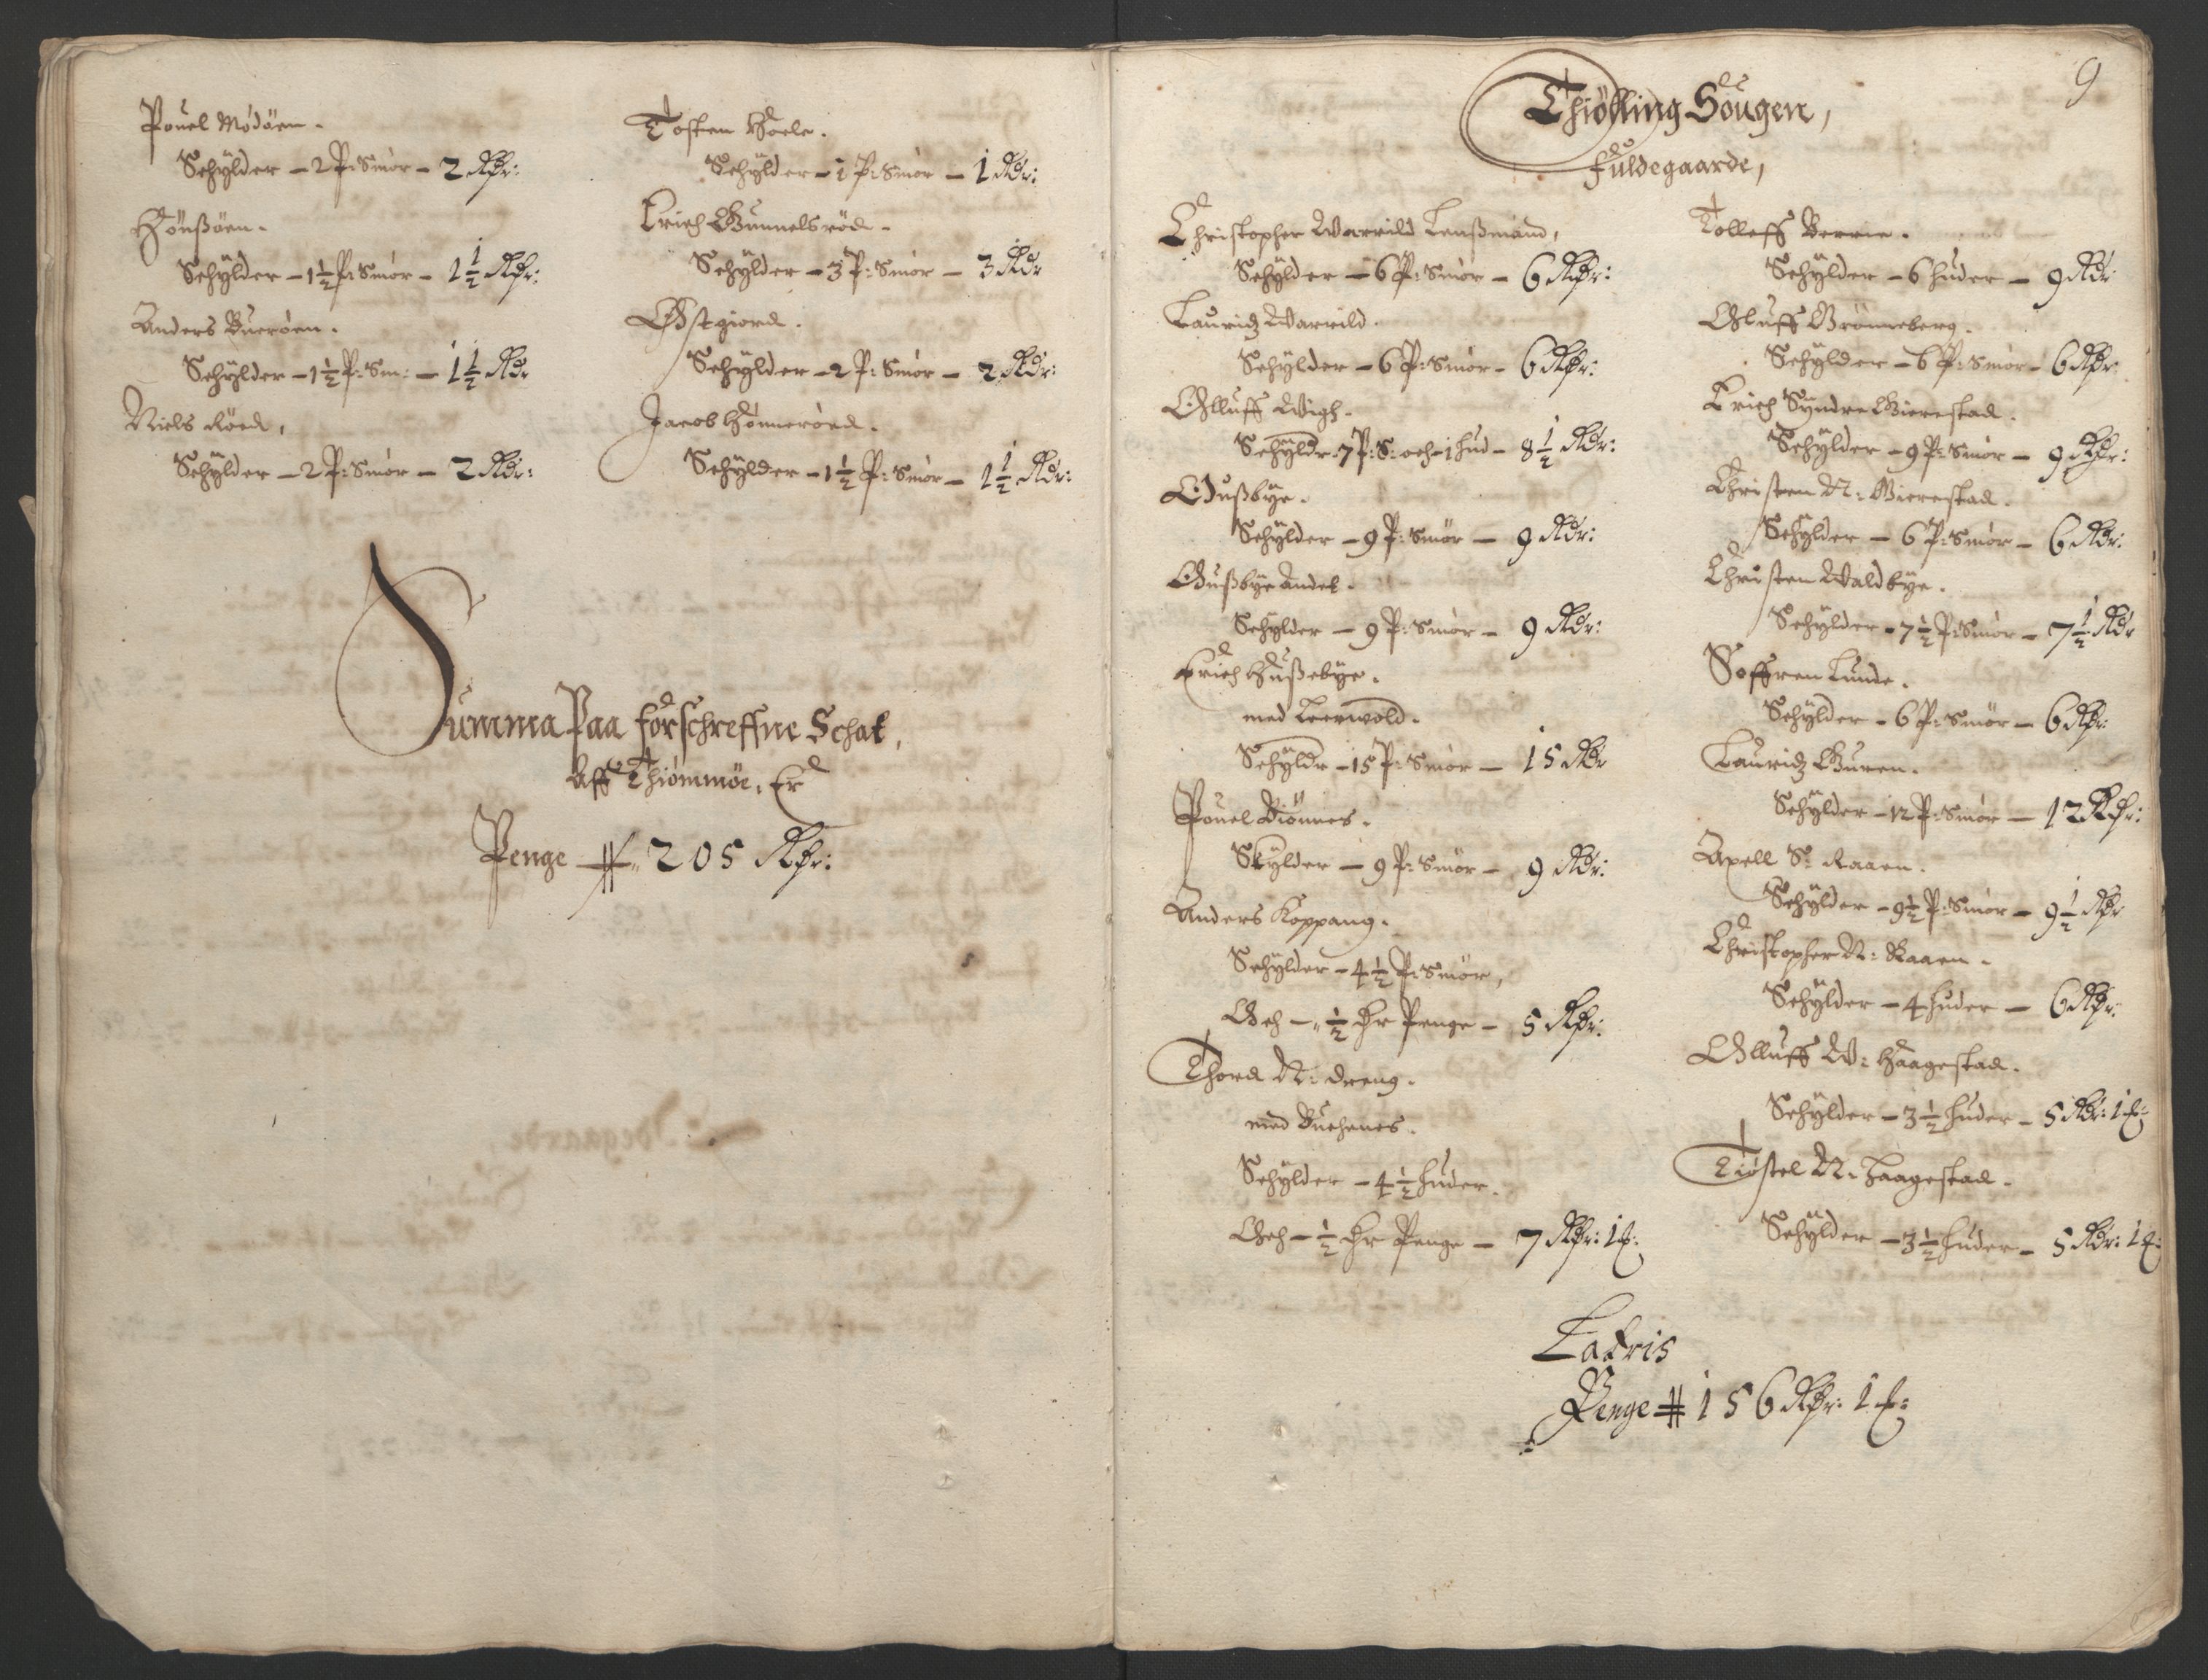 Pouel Mødøen.
Schÿlder – 2 P: Smør – 2 Rdr:
Hønßøen.
Schÿlder – 1½ P: Smør – 1½ Rdr:
Anders Buerøen.
Schÿlder – 1½ P: Sm: – 1½ Rdr
Niels Røed,
Schÿlder – 2 P: Smør – 2 Rdr:
Tosten Hoele.
Schÿlder – 1 P: Smør – 1 Rdr:
Erich Gunnelsrød.
Schÿlder – 3 P: Smør – 3 Rdr
Østgiord.
Schÿlder – 2 P: Smør – 2 Rdr:
Jacob Hønnerøed.
Schÿlder – 1½ P: Smør – 1½ Rdr:
Summa Paa forschreffne Schat,
Aff Thiømmøe, Er
Penge – 205 Rdr:
9
Thiølling Sougen,
fuldegaarde,
Christopher Warrild Lenßmand,
Schÿlder – 6 P: Smør – 6 Rdr:
Lauridz Warrild.
Schÿlder – 6 P: Smør – 6 Rdr:
Olluff Wigh.
Schÿldr – 7 P: S: och – 1 hud – 8½ Rdr:
Gußbÿe.
Schÿlder – 9 P: Smør – 9 Rdr:
Gußbÿe Andet.
Schÿlder – 9 P: Smør – 9 Rdr:
Erich Hußebÿe.
med Leerwold.
Schÿldr – 15 P: Smør – 15 Rdr
Pouel Biønnes.
Skÿlder – 9 P: Smør – 9 Rdr:
Anders Koppang.
Schÿlder – 4½ P: Smør,
Och – ½ Hr Penge – 5 Rdr:
Thord N: dreng.
med Buchenes.
Schÿlder – 4½ huder.
Och – ½ Hr Penge – 7 Rdr: 1 £:
Tolleff Berrie.
Schÿlder – 6 huder – 9 Rdr
Oluff Grønneberg.
Schÿlder – 6 P: Smør – 6 Rdr
Erich Syndre Gierestad.
Schÿlder – 9 P: Smør – 9 Rdr:
Christen N: Gierestad.
Schÿlder – 6 P: Smør – 6 Rdr:
Christen Waldbÿe.
Schÿlder – 7½ P: Smør – 7½ Rdr
Soffren Lunde.
Schÿlder – 6 P: Smør – 6 Rdr:
Lauridz Guren.
Schÿlder – 12 P: Smør – 12 Rdr:
Axell S: Raaen.
Schÿlder – 9½ P: Smør – 9½ Rdr
Christopher N: Raaen.
Schÿlder – 4 huder – 6 Rdr:
Olluff W: Haagestad.
Schÿlder – 3½ huder – 5 Rdr: 1 £:
Tiøstel N: Haagestad.
Schÿlder – 3½ huder – 5 Rdr: 1 £:
Latris
Penge – 156 Rdr: 1 £: